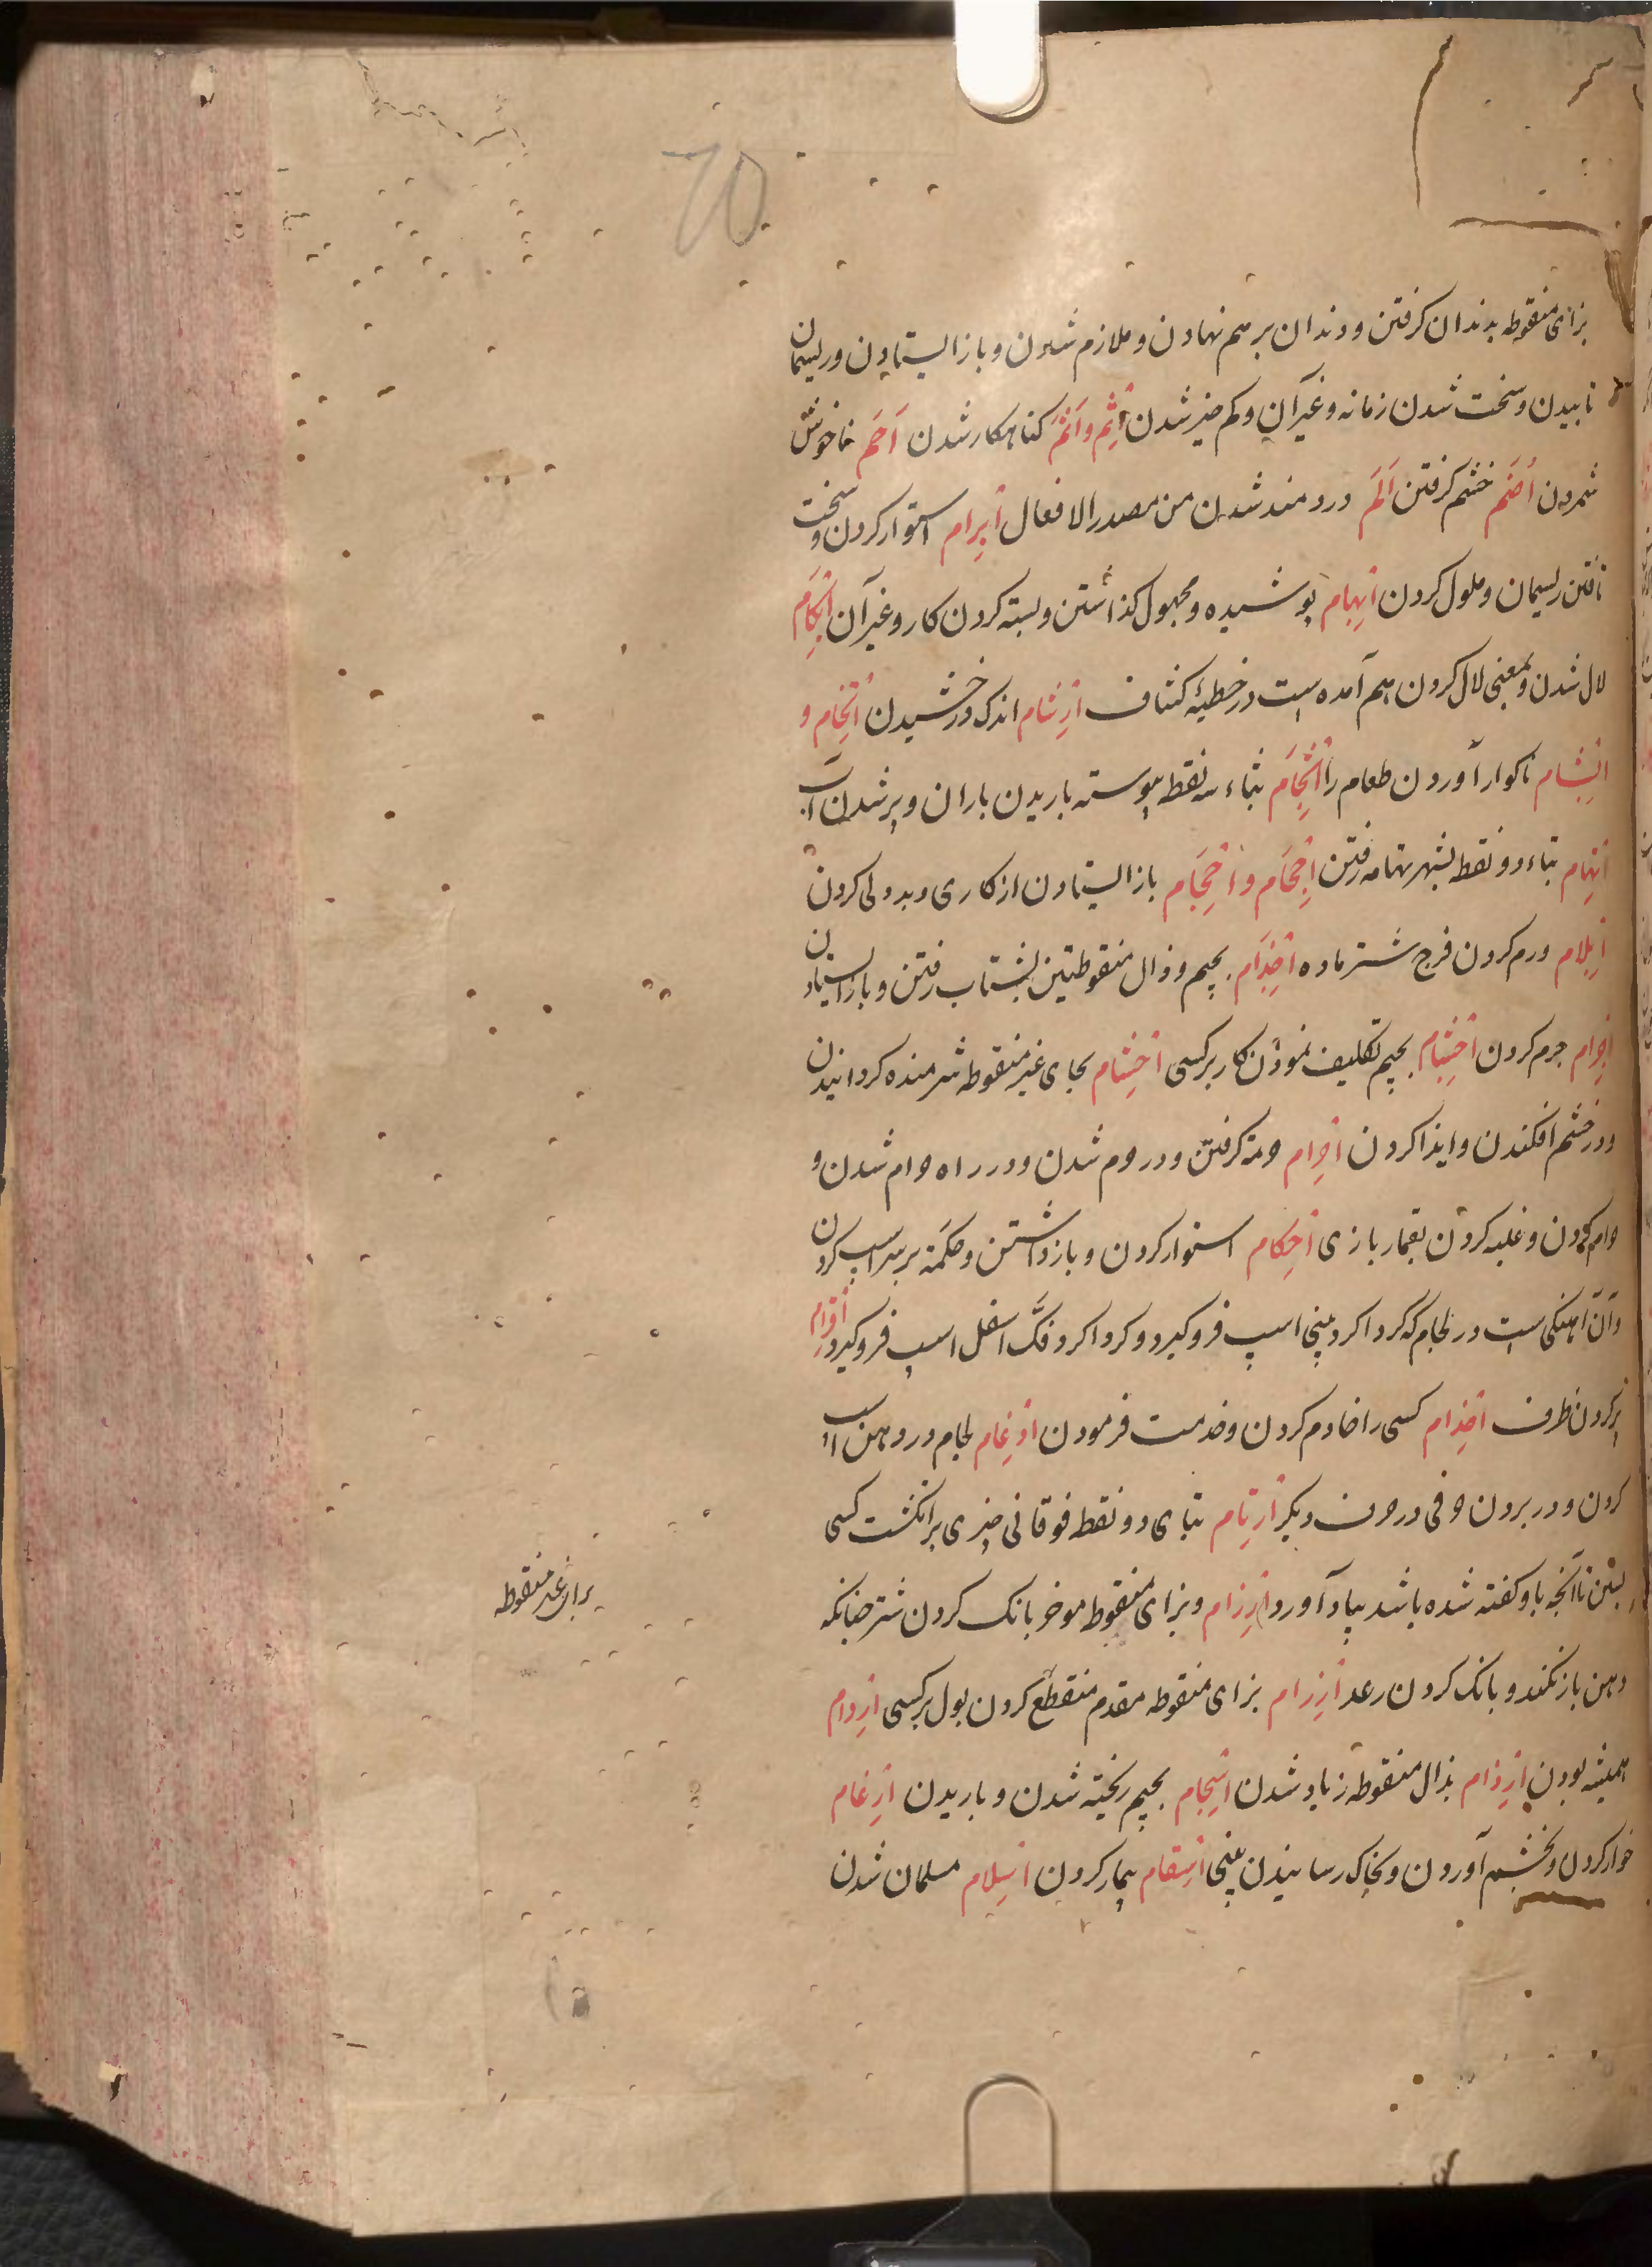 70
بزای منقوطه بدندان کرفتن و دندان بر هم نهادن و ملازم شدن و باز ایستادن و ریسمان
تابیدن و سخت شدن زمانه و غیر آن و کم خیر شدن اِثم و اَثَم کناهکار شدن اَجَم ناخوش
شمردن اَضَم خشم کرفتن اَلَم دردمند شدن من مصدر الافعال اِبرام استوار کردن و سخت
تافتن ریسمان و ملول کردن اِبهام پوشیده و مجهول کذاشتن و بسته کردن کار و غیر آن اِبکام
لال شدن و بمعنی لال کردن هم آمده است در خطبهٔ کشاف اِرشام اندک درخشیدن اِتخام و
ابشام ناکوار آوردن طعام را اِثجام بثاء سه نقطه پیوسته باریدن باران و پر شدن آب
اِتهام بتاء دو نقطه بشهر تهامه رفتن اِجحام و اِحجام باز ایستادن از کاری و بددلی کردن
اِبلام ورم کردن فرج شتر ماده اِجذام بجیم و ذال منقوطتین بشتاب رفتن و باز استادن
اِجرام جرم کردن اِجشام بجیم تکلیف نمودن کار بر کسی اِحشام بحای غیر منقوطه شرمنده کردانیدن
و در خشم افکندن و ایذا کردن اِحرام حرمة کرفتن و در حرم شدن و در راه حرام شدن و
حرام کردن و غلبه کردن بقمار بازی اِحکام استوار کردن و باز داشتن و حکمة بر سر اسب کردن
و آن آهنکی است در لجام که کرد اکرد بینی اسب فرو کیرد و کرد اکرد فک اسفل اسب فرو کیرد
پر کردن ظرف اِخدام کسی را خادم کردن و خدمت فرمودن اِدغام لجام در دهن اسب
کردن و در بردن حرفی در حرف دیکر اِرتام بتای دو نقطه فوقانی چیزی بر انکشت کسی
بستن تا آنچه باو کفته شده باشد بیاد آورد اِرزام و بزای منقوط موخر بانک کردن شتر چنانکه
برای غیر منقوطه
دهن باز نکند و بانک کردن رعد اِزرام بزای منقوطه مقدم منقطع کردن بول بر کسی اِردام
همیشه بودن اِرذام بذال منقوطه زیاد شدن اِسجام بجیم ریخته شدن و باریدن اِرغام
خوار کردن و بخشم آوردن و بخاک رسانیدن بینی اِسقام بیمار کردن اِسلام مسلمان شدن